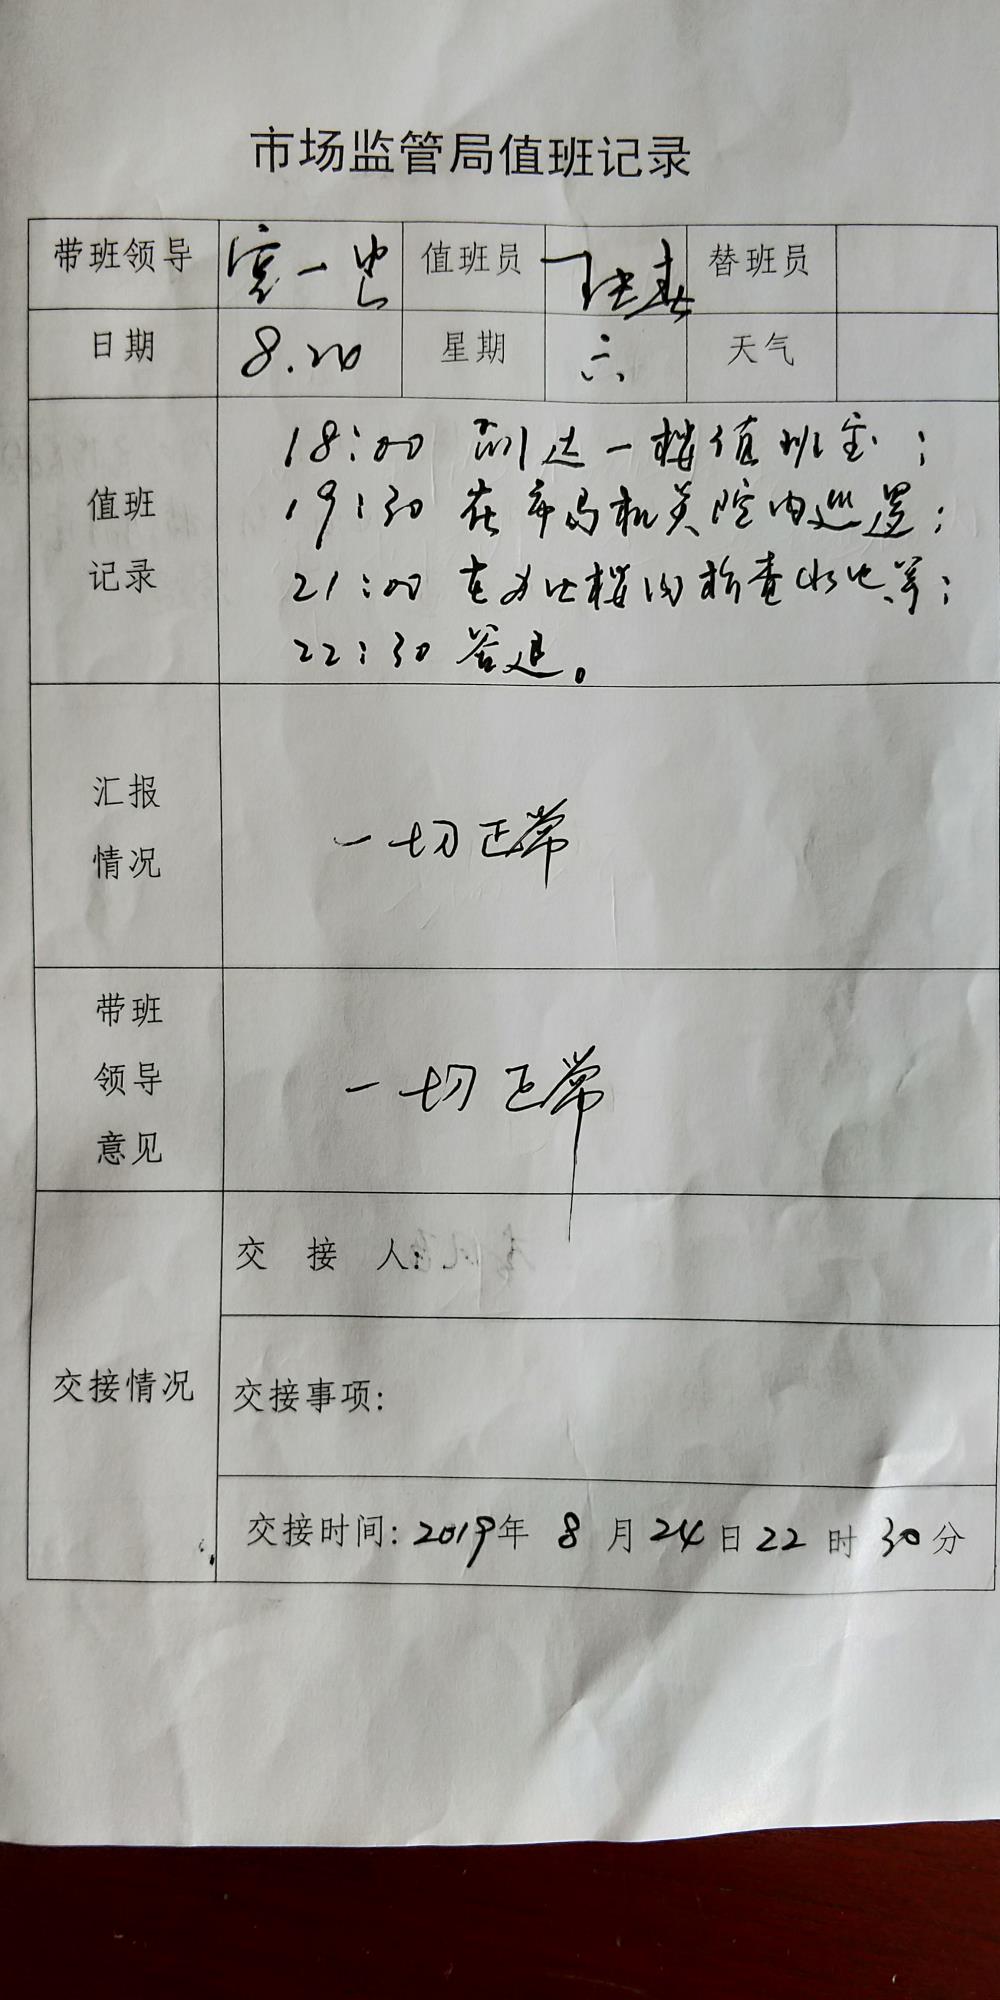 市场监管局值班记录
带班领导 值班员 替班员
日期 8.24 星期 六 天气
值班记录
18:00 到达一楼值班室;
19:30 在市局机关院内巡逻;
21:00 在办公楼内检查水电等;
22:30 签退。
汇报情况
一切正常
带班领导意见
一切正常
交接情况
交接人:
交接事项:
交接时间:2019年8月24日22时30分